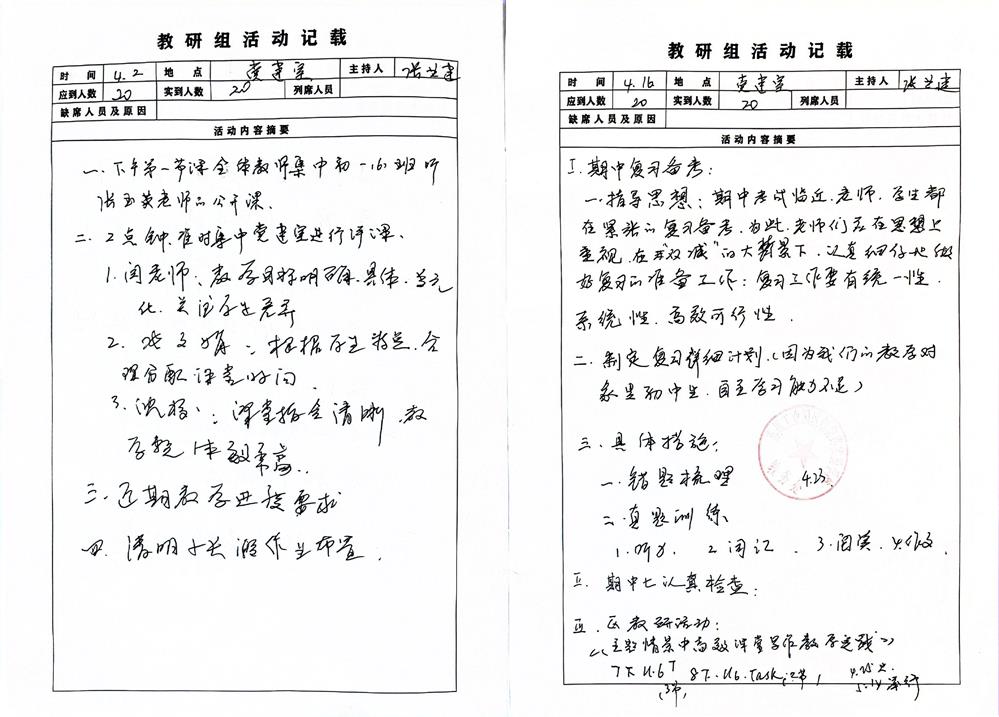 教研组活动记载
时间 4.2 地点 党建室 主持人
应到人数 20 实到人数 20 列席人员
缺席人员及原因
活动内容摘要
一.下午第一节课全体教师集中初一16班听
张玉英老师的公开课.
二.2点钟,准时集中党建室进行评课.
1.闵老师:教学目标明确.具体.单元
化.关注学生差异
2. :根据学生特点.合
理分配课堂时间.
3. :课堂指令清晰.教
学整体效率高..
三.近期教学进度要求
四.清明小长假作业布置.
教研组活动记载
时间 4.16 地点 党建室 主持人
应到人数 20 实到人数 20 列席人员
缺席人员及原因
活动内容摘要
I.期中复习备考:
一.指导思想:期中考试临近.老师.学生都
在紧张的复习备考.为此.老师们要在思想上
重视.在"双减"的大背景下,认真细仔地做
好复习的准备工作:复习工作要有统一性.
系统性.高效可行性.
二.制定复习详细计划.(因为我们的教学对
象是初中生.自主学习能力不足)
三.具体措施:
一.错题梳理 4.23
二.真题训练
1.听力. 2.词汇. 3.阅读. 4.作文.
II.期中七认真检查:
III. 区教研活动:
《主题情景中高效课堂写作教学实践》
7下.U.6T 8下.U6.Task